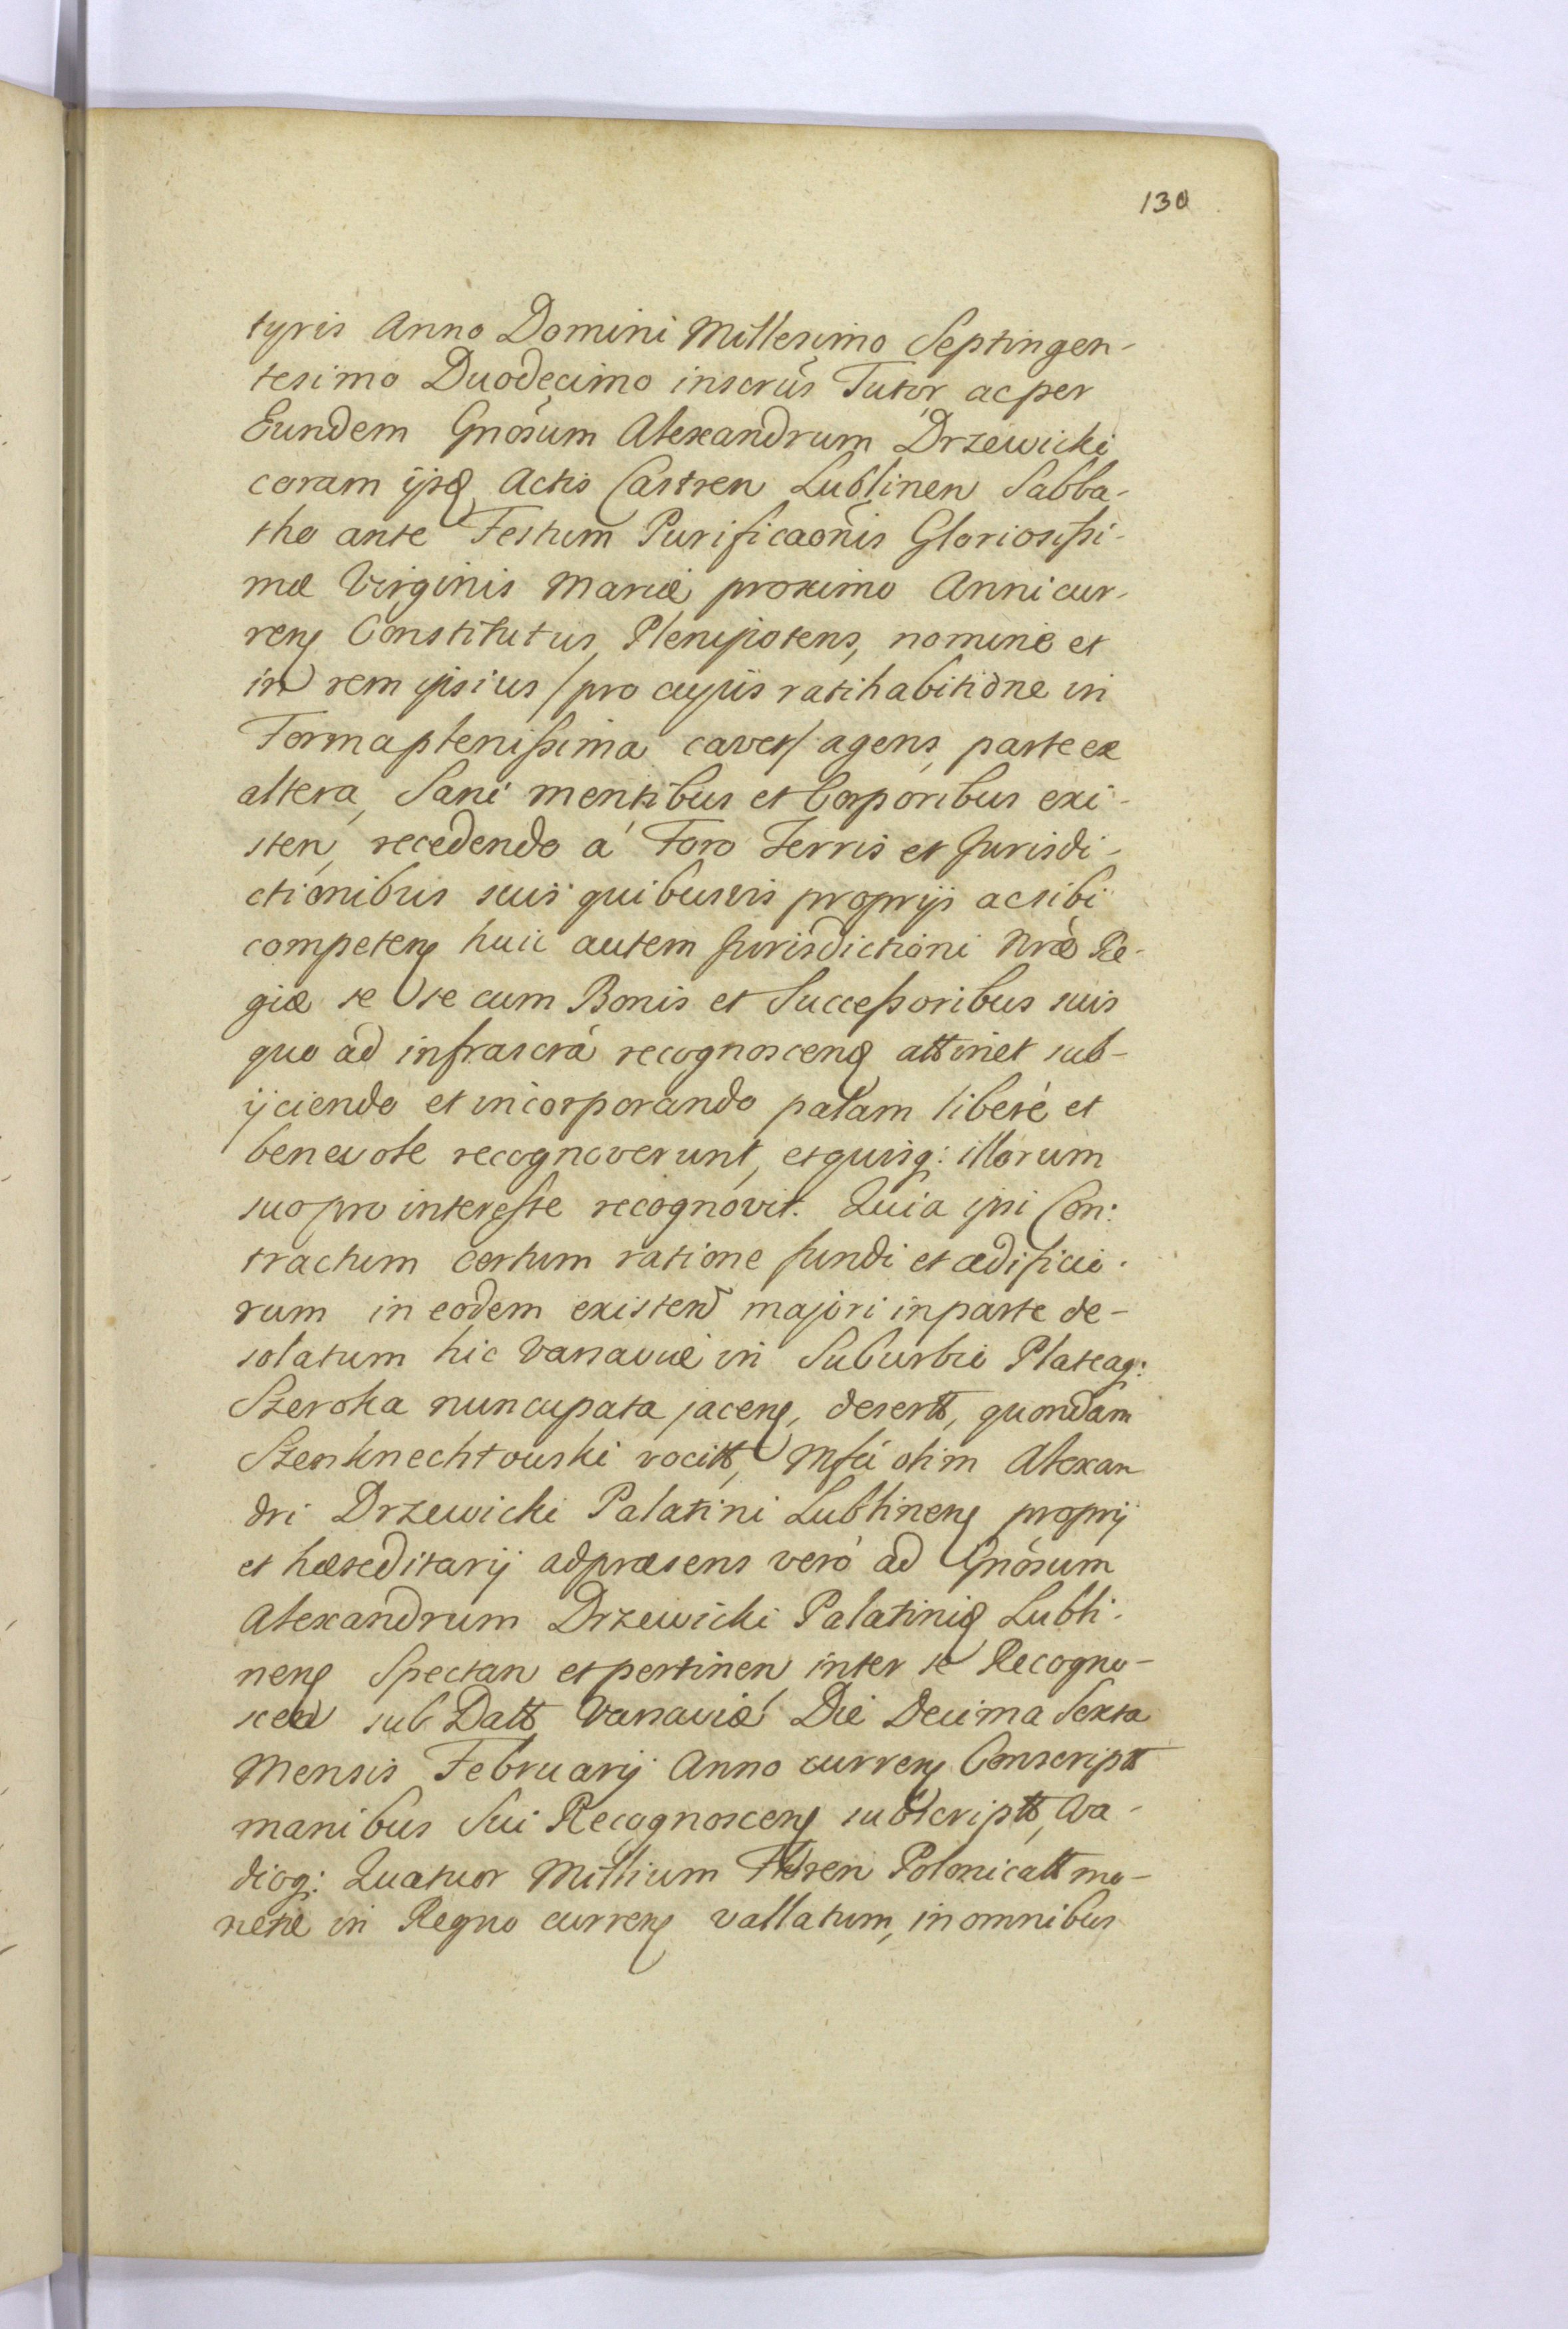 130
tyris Anno Domini Millesimo Septingen-
tesimo Duodecimo inscrús Tutor ac per
Eundem Gnosum Alexandrum Drzewicki
coram ijsd Actis Castren Lublinen Sabba-
tho ante Festum Purificaonis Gloriosissi-
mæ Virginis Mariæ proximo Anni cur-
ren Constitutus Plenipotens, nomine et
in rem ipsius / pro cujus ratihabitione in
Forma plenissima cavet / agens, parte ex
altera, Sani mentibus et Corporibus exi-
sten, recedendo á Foro Terris et Jurisdi-
ctionibus suis quibusvis proprijs ac sibi
competen huic autem Jurisdictioni Nræ Re-
giæ se se cum Bonis et Successoribus suis
quo ad infrascra recognoscen attinet sub-
ijciendo et incorporando palam liberè et
benevole recognoverunt, et quisq: illorum
suo pro interesse recognovit. Quia ipsi Con:
tractum certum ratione fundi et ædificio-
rum in eodem existen majori in parte de-
solatum hic Varsaviæ in Suburbio Plateaq:
Szeroka nuncupata jacen, desertt, quondam
Szenknechtowski vocitt, Mfci olim Alexan
dri Drzewicki Palatini Lublinen proprij
et hæreditarij ad præsens verò ad Gnosum
Alexandrum Drzewicki Palatinid Lubli-
nen Spectan et pertinen inter se Recogno-
scen sub Datt Varsaviæ Die Decima Sexta
Mensis Februarij Anno curren Conscriptt
manibus Sui Recognoscen subscriptt, Va-
dioq: Quatuor Millium Floren Polonicatt mo-
netæ in Regno curren vallatum, in omnibus